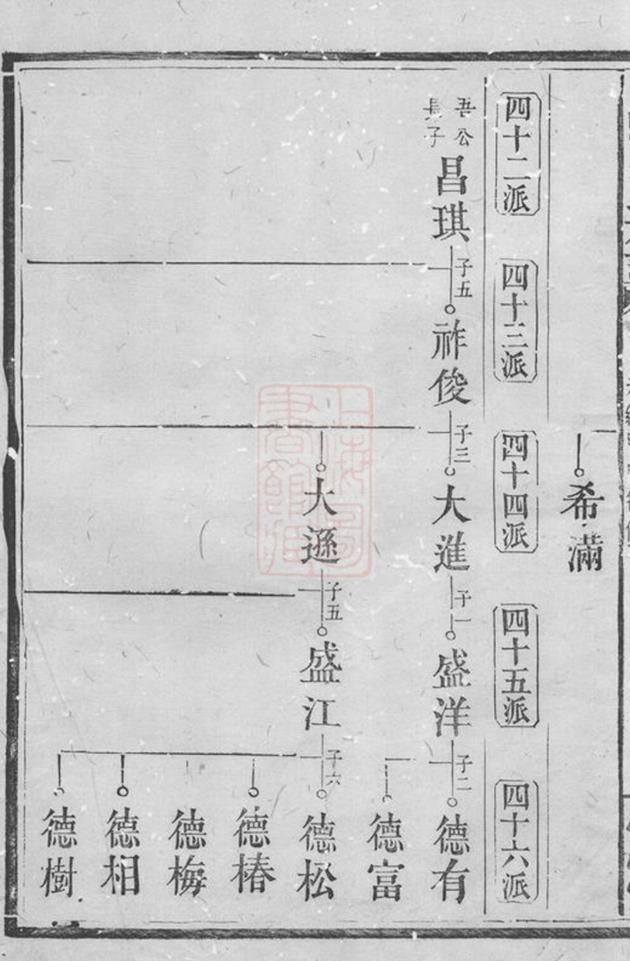 希滿
四十二派
四十三派
四十四派
四十五派
四十六派
吾公
長子
昌琪
子五
祚俊
子三
大進
子一
盛洋
子二
德有
德富
大遜
子五
盛江
子六
德松
德椿
德梅
德相
德樹